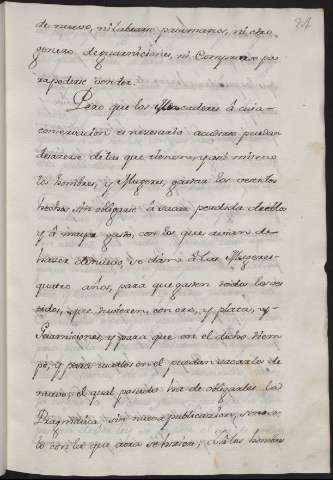 21
de nuevo, ni labrarse pasamanos, ni otro
genero de guarniciones, ni Comprarse pa
rapoderse vender.
Pero que los Mercaderes à cuia
conservacion es necesario acudirse puedan
desacerse delas que tienen, y asi mismo
los hombres, y Mugeres, gastar los vestidos
hechos, sin obligarse à sacar perdida de ellos
y à mayor gasto, con los que avian de
hacer denuevo, se dan à las Mugeres
quatro años, para que gasten todos los ves
tidos, que tuvieren con oro, y plata, y
Guarniciones, y para que en el dicho tiem
po, y para
en el puedan sacarlos de
nuevo; el qual pasado ha de obligarles la
Pragmatica, sin nueva publicacion,
lo con la que aora se hiciere; I a los hombres